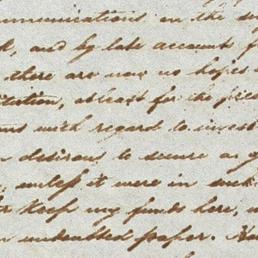 mmunications on the su
k, and by late accounts f
there are now no hopes
titution, at least for the pres
ns with regard to invest
n desirous to secure as g
, unless it were in such
r keep my funds here, u
n undoubted paper.